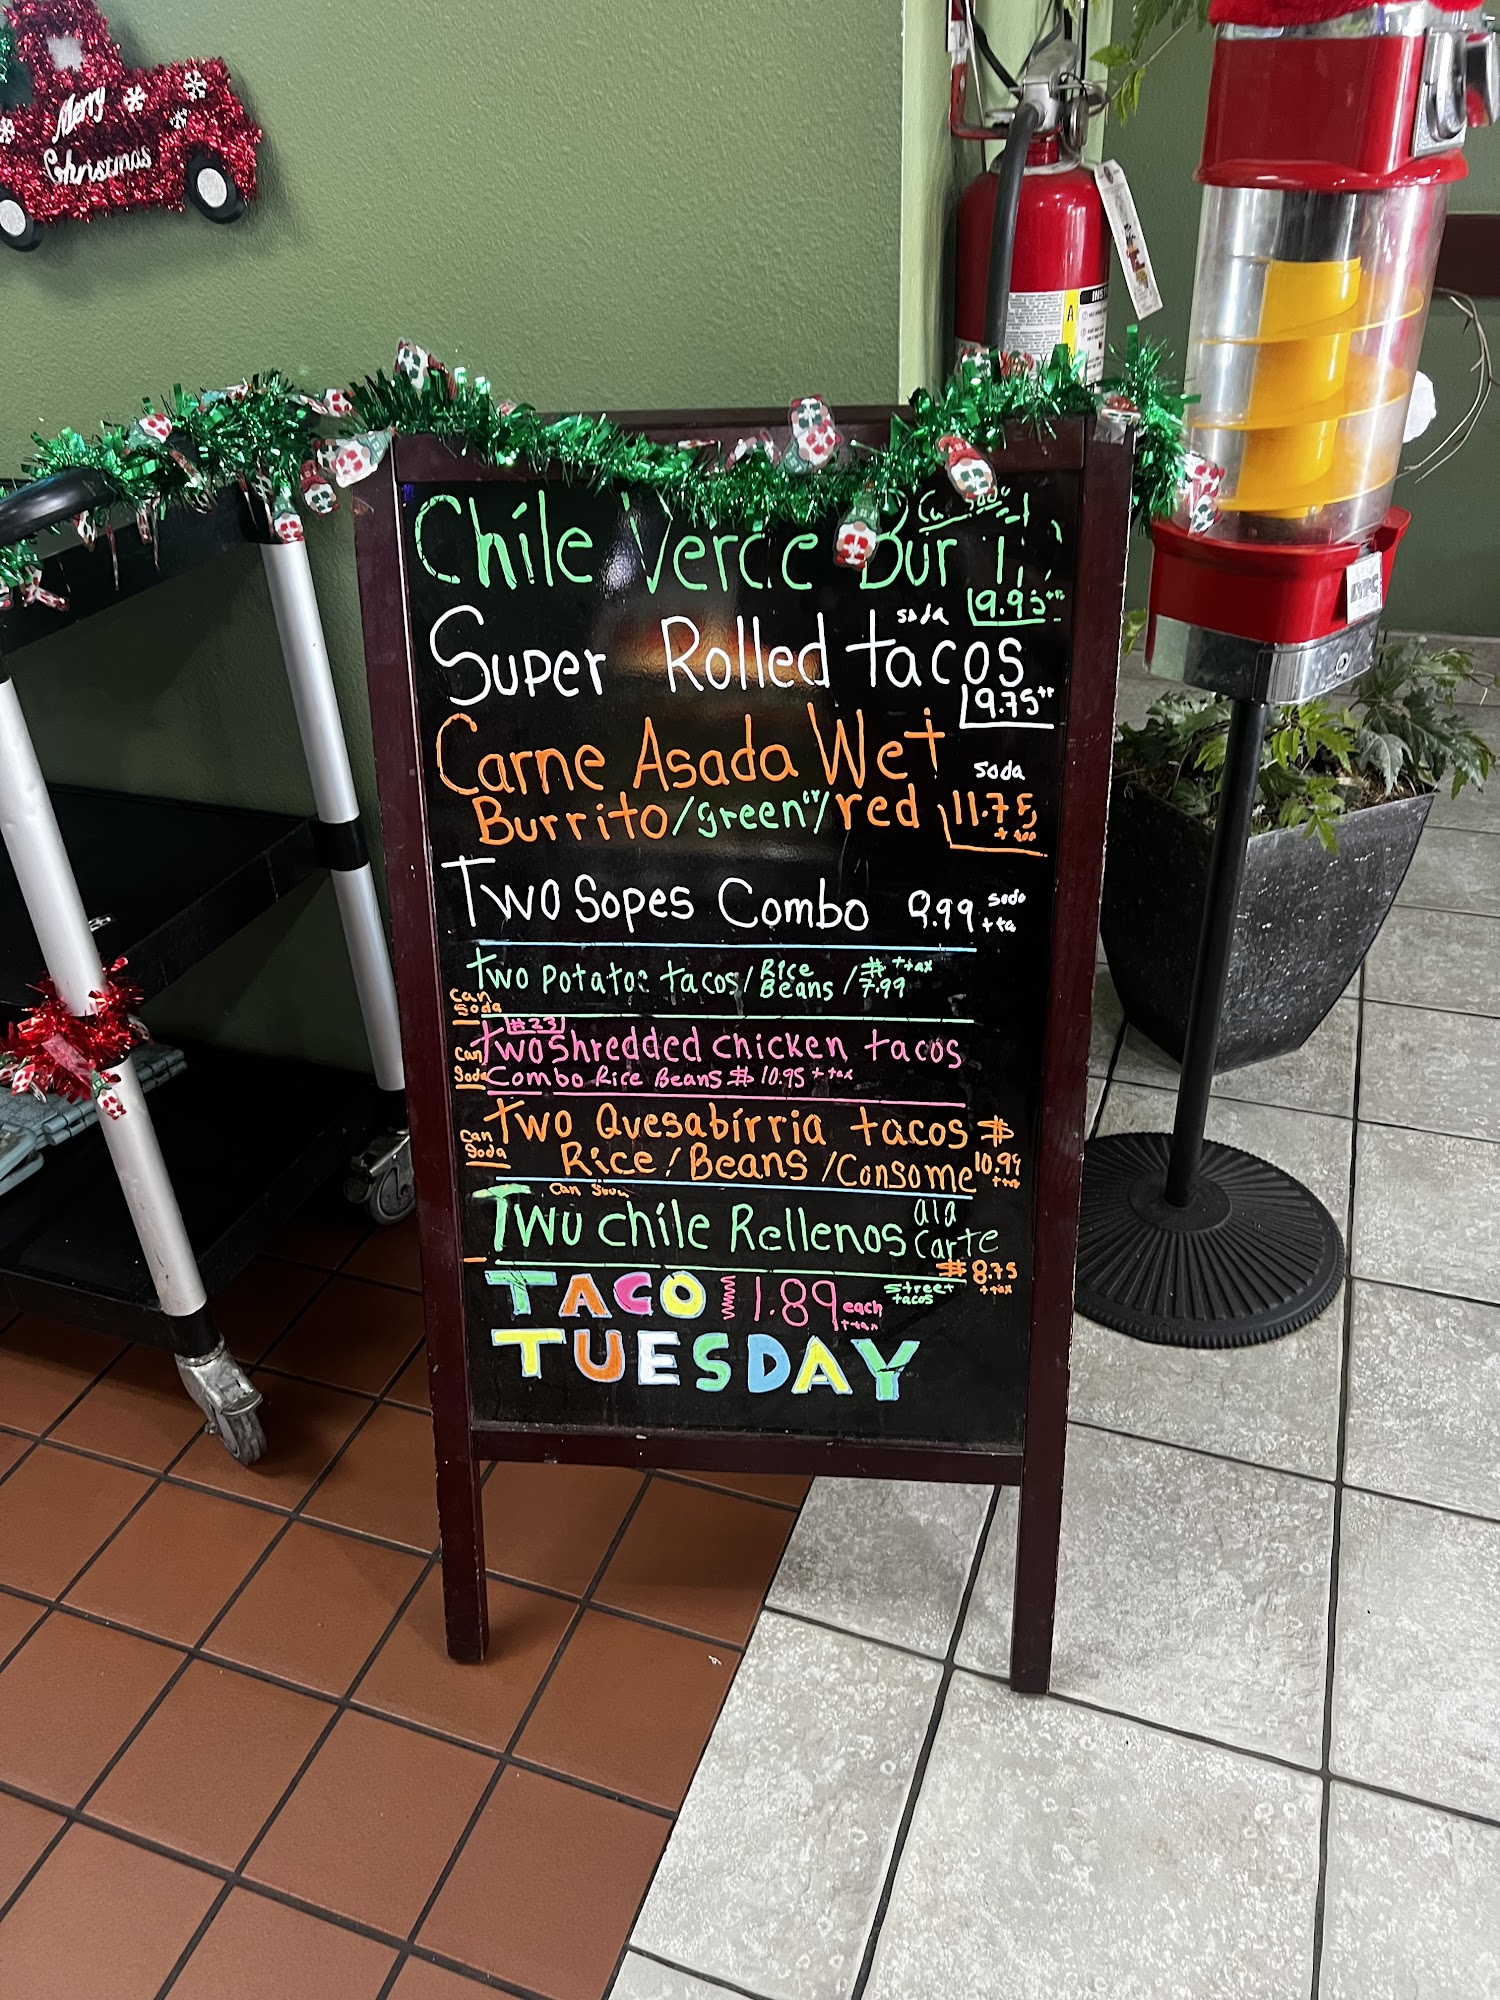 Merry
Christmas
A
Chile Verde
9.95
soda
Super Rolled tacos
9.75
Carne Asada Wet
soda
Burrito/green or/red 11.75
Two Sopes Combo 9.99 soda
+ta
Two Potatoe tacos/Rice Beans/$7.99 +tax
Can Soda
#23
Two Shredded chicken tacos
Can Soda
Combo Rice Beans $10.95 +tax
Two Quesabirria tacos $
Can Soda
Rice/Beans/Consome 10.99
Can
Two chile Rellenos ala Carte
$8.75
+tax
TACO 1.89 each street tacos
TUESDAY